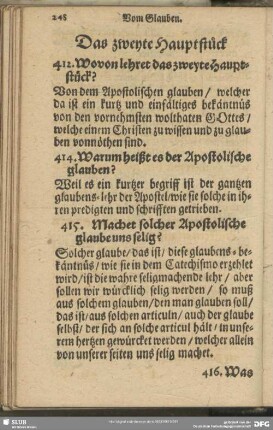 248 Vom Glauben.
Das zweyte Hauptstück
412. Wovon lehret das zweyte Haupt-
stück?
Von dem Apostolischen glauben / welcher
da ist ein kurtz und einfältiges bekäntnüs
von den vornehmsten wolthaten GOttes /
welche einem Christen zu wissen und zu glau-
ben vonnöthen sind.
414. Warum heißt es der Apostolische
glauben?
Weil es ein kurtzer begriff ist der gantzen
glaubens-lehr der Apostel / wie sie solche in ih-
ren predigten und schrifften getrieben.
415. Machet solcher Apostolische
glaube uns selig?
Solcher glaube / das ist / diese glaubens-be-
käntnüs / wie sie in dem Catechismo erzehlet
wird / ist die wahre seligmachende lehr / aber
sollen wir würcklich selig werden / so muß
aus solchem glauben / den man glauben soll /
das ist / aus solchen articuln / auch der glaube
selbst / der sich an solche articul hält / in unse-
rem hertzen gewürcket werden / welcher allein
von unserer seiten uns selig machet.
416. Was
SLUB
DFG